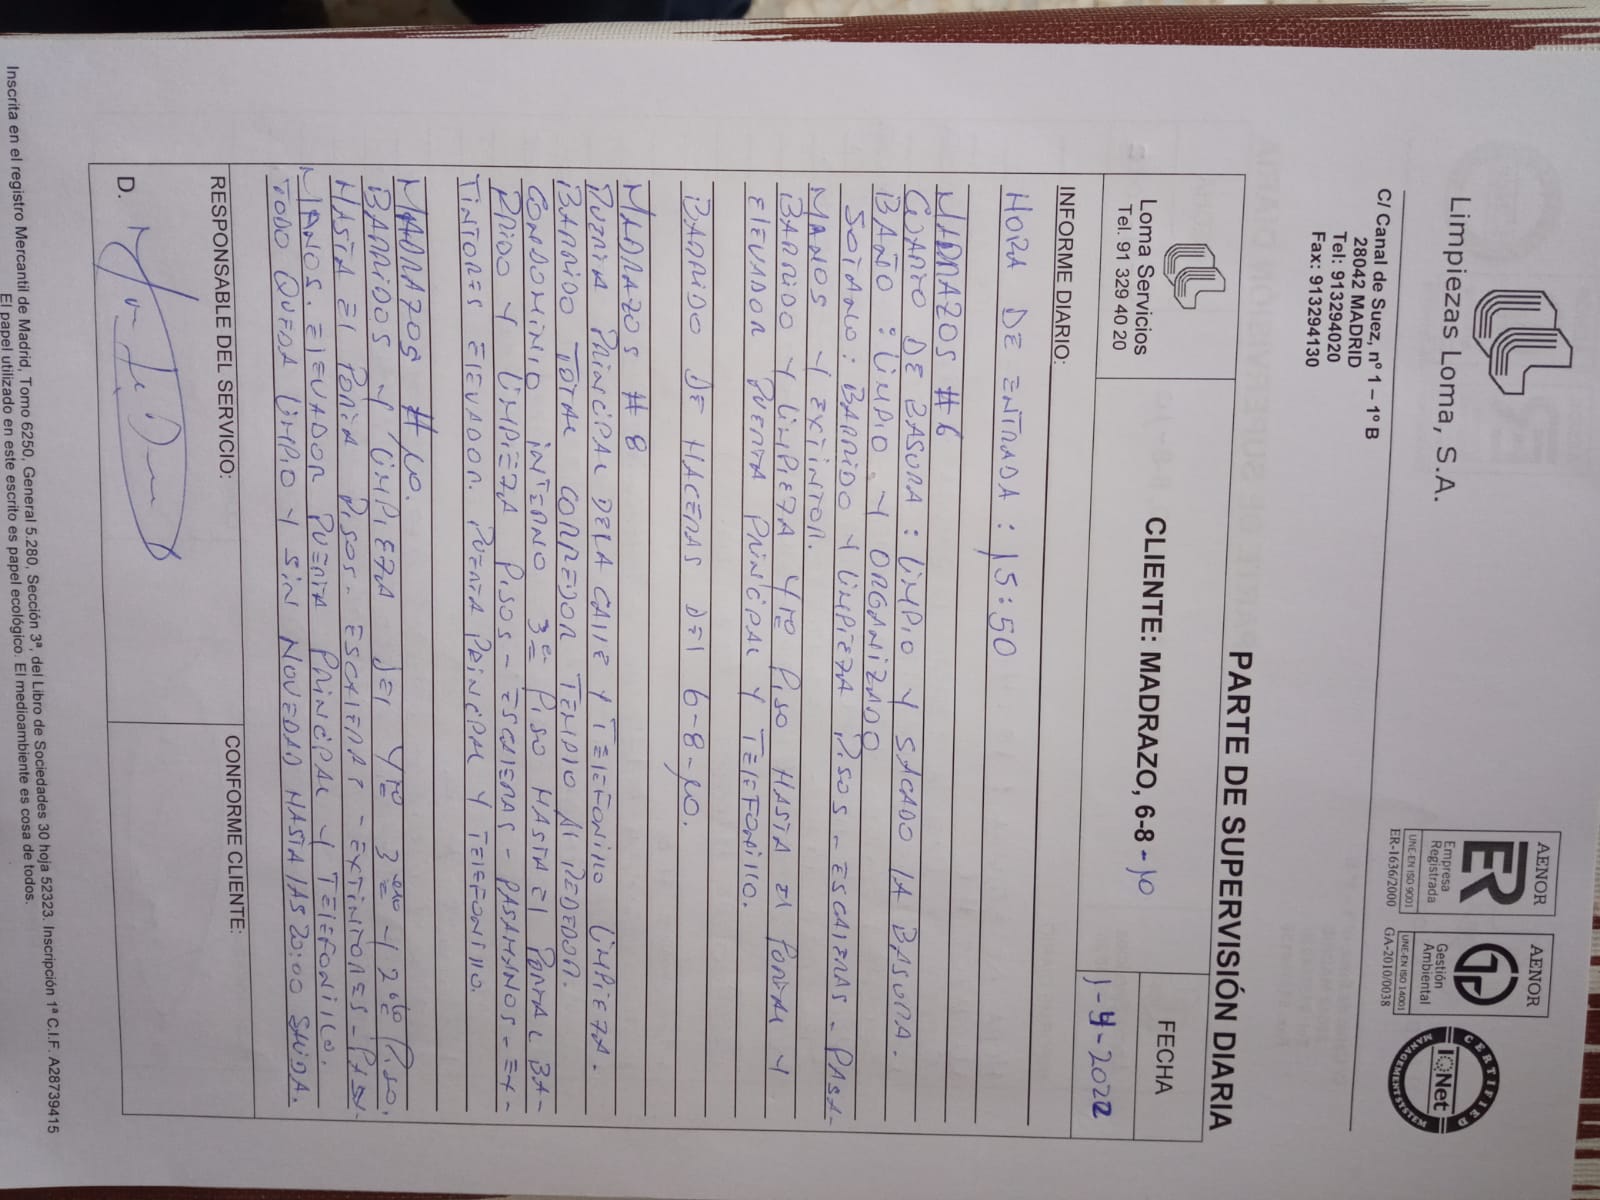 Limpiezas Loma, S.A.
C/ Canal de Suez, nº 1 – 1º B
28042 MADRID
Tel: 913294020
Fax: 913294130
AENOR
ER
Empresa
Registrada
UNE-EN ISO 9001
ER-1636/2000
AENOR
Gestión
Ambiental
UNE-EN ISO 14001
GA-2010/0038
CERTIFIED
IQNet
MANAGEMENT SYSTEM
PARTE DE SUPERVISIÓN DIARIA
Loma Servicios
Tel. 91 329 40 20
CLIENTE: MADRAZO, 6-8-10
FECHA
1-4-2022
INFORME DIARIO:
HORA DE ENTRADA: 15:50
MADRAZOS #6
CUARTO DE BASURA: LIMPIO Y SACADO LA BASURA.
BAÑO: LIMPIO Y ORGANIZADO
SOTANO: BARRIDO Y LIMPIEZA PISOS - ESCALERAS - PASA-
MANOS Y EXINTOR.
BARRIDO Y LIMPIEZA 4to PISO HASTA EL PORTAL Y
ELEVADOR PUERTA PRINCIPAL Y TELEFONILLO.
BARRIDO DE HACERAS DEL 6-8-10.
MADRAZOS #8
PUERTA PRINCIPAL DE LA CALLE Y TELEFONILLO LIMPIEZA.
BARRIDO TOTAL CORREDOR TEMPLO ALREDEDOR.
CONDOMINIO INTERNO 3er PISO HASTA EL PORTAL BA-
RRIDO Y LIMPIEZA PISOS - ESCALERAS - PASAMANOS - EX-
TINTORES ELEVADOR PUERTA PRINCIPAL Y TELEFONILLO.
MADRAZOS #10.
BARRIDOS Y LIMPIEZA DEL 4to 3ero Y 2do PISO.
HASTA EL PORTAL PISOS - ESCALERAS - EXTINTORES - PASA-
MANOS. ELEVADOR PUERTA PRINCIPAL Y TELEFONILLO.
TODO QUEDA LIMPIO Y SIN NOVEDAD HASTA LAS 20:00 SALIDA.
RESPONSABLE DEL SERVICIO:
CONFORME CLIENTE:
D.
Inscrita en el registro Mercantil de Madrid, Tomo 6250, General 5.280, Sección 3ª, del Libro de Sociedades 30 hoja 52323. Inscripción 1ª C.I.F. A28739415
El papel utilizado en este escrito es papel ecológico. El medioambiente es cosa de todos.